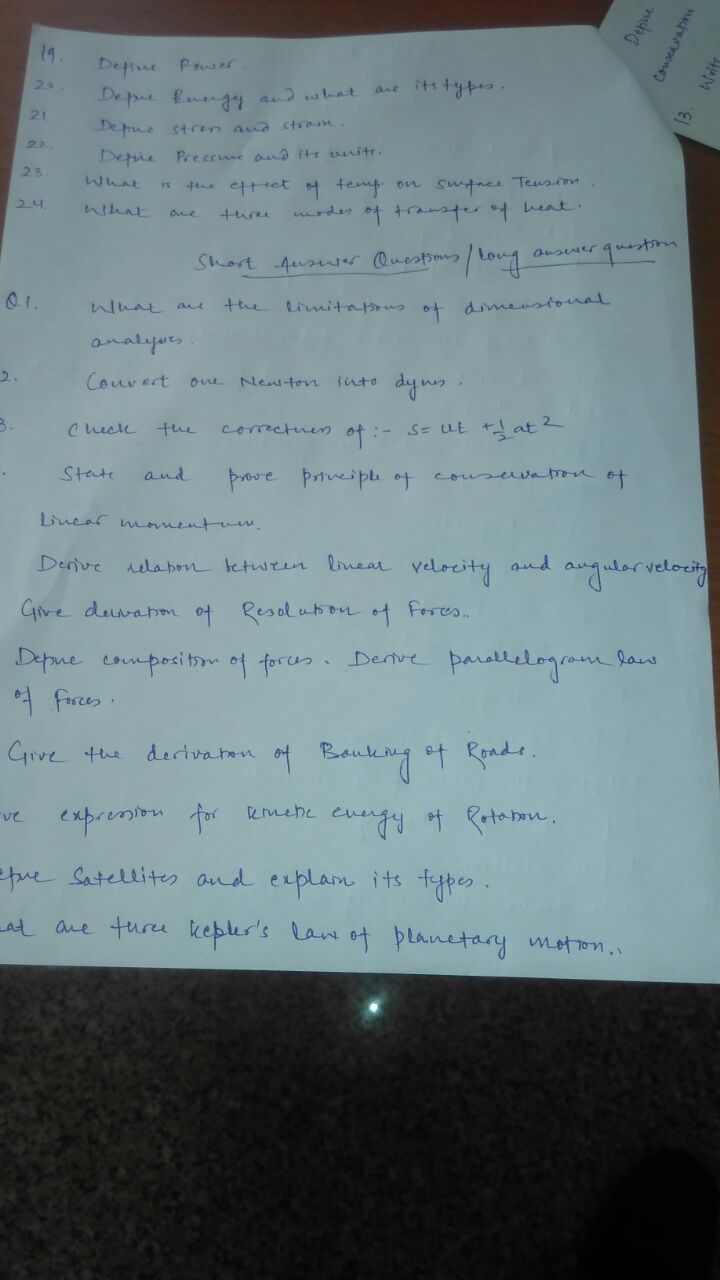 19. Define Power.
20. Define Energy and what are its types.
21. Define stress and strain.
22. Define Pressure and its units.
23. What is the effect of temp. on Surface Tension.
24. What are three modes of transfer of heat.
Short Answer Questions / long answer question
Q1. What are the limitations of dimensional
analysis.
2. Convert one Newton into dynes.
3. Check the correctness of :- s = ut + 1/2 at 2
. State and prove principle of conservation of
linear momentum.
Derive relation between linear velocity and angular velocity
Give derivation of Resolution of Forces..
Define composition of forces. Derive parallelogram law
of Forces.
Give the derivation of Banking of Roads.
ve expression for kinetic energy of Rotation.
efine Satellites and explain its types.
at are three Kepler's law of planetary motion..
Define
Conservation
13. Write